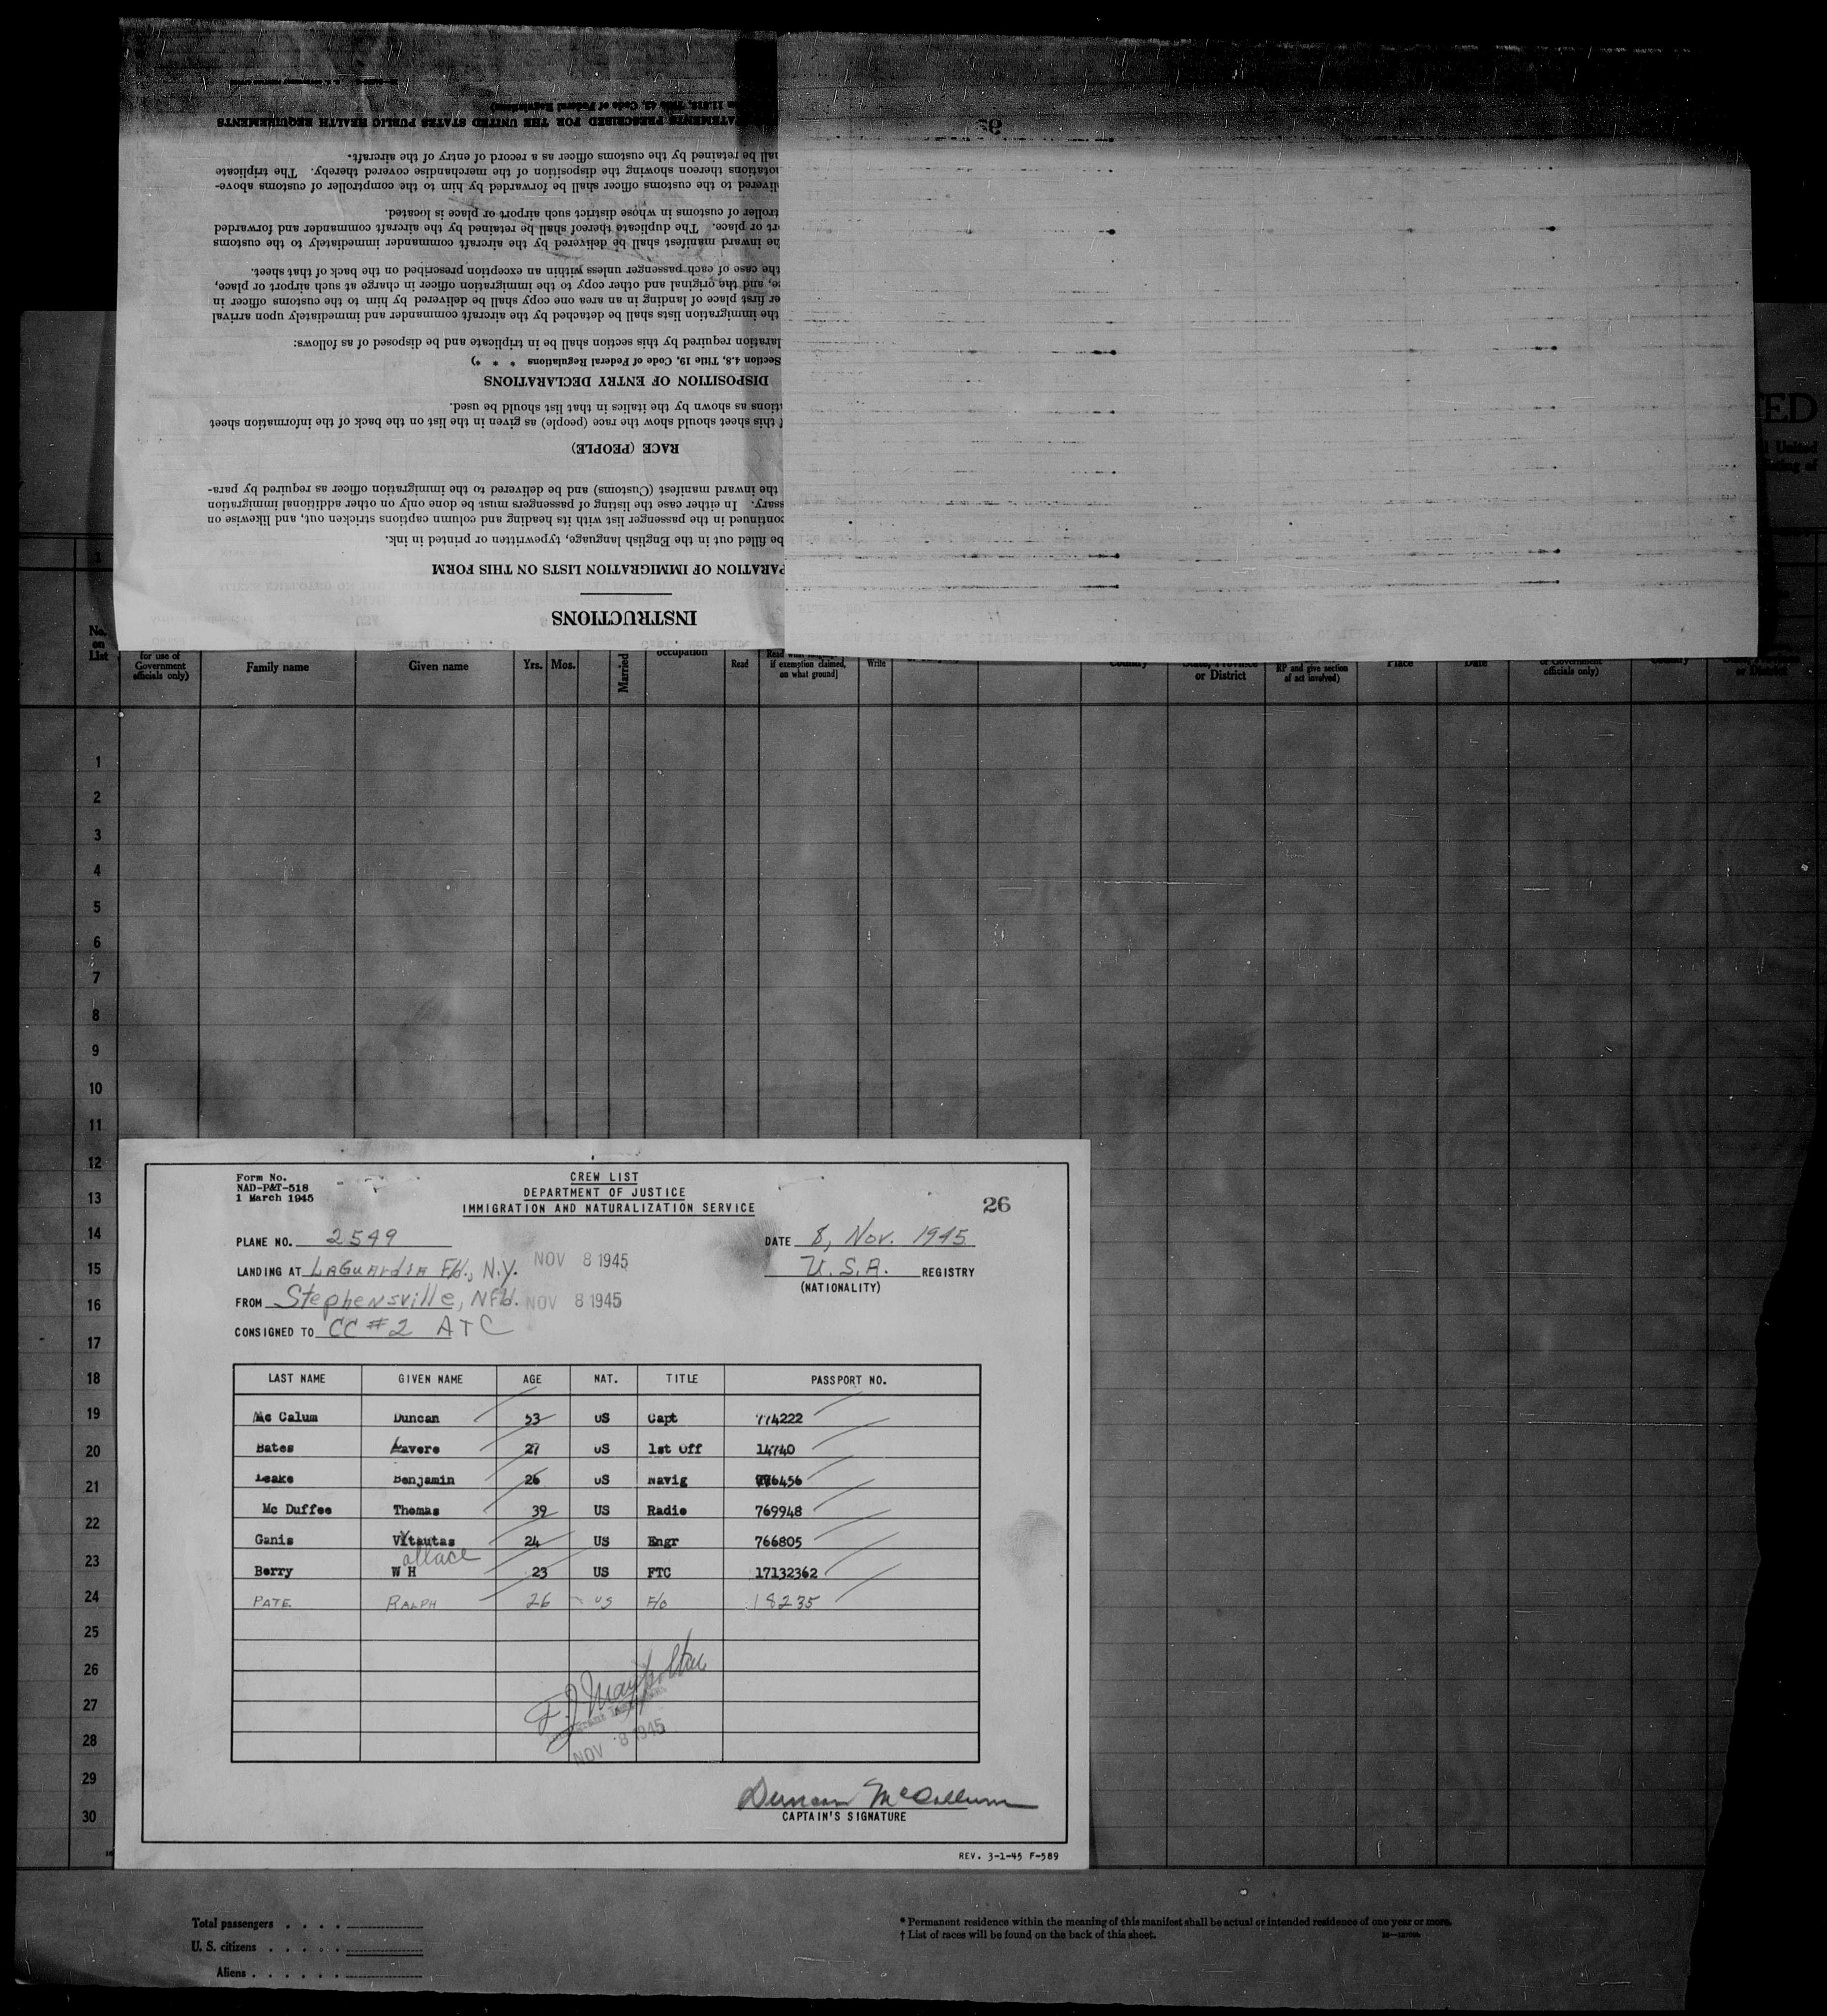 STATEMENTS PRESCRIBED FOR THE UNITED STATES PUBLIC HEALTH REQUIREMENTS
11.515, Title 42, Code of Federal Regulations)
26
INSTRUCTIONS
PARATION OF IMMIGRATION LISTS ON THIS FORM
be filled out in the English language, typewritten or printed in ink.
continued in the passenger list with its heading and column captions stricken out, and likewise on
ssary. In either case the listing of passengers must be done only on other additional immigration
the inward manifest (Customs) and be delivered to the immigration officer as required by para-
RACE (PEOPLE)
f this sheet should show the race (people) as given in the list on the back of the information sheet
tions as shown by the italics in that list should be used.
DISPOSITION OF ENTRY DECLARATIONS
Section 4.8, Title 19, Code of Federal Regulations * * *)
laration required by this section shall be in triplicate and be disposed of as follows:
the immigration lists shall be detached by the aircraft commander and immediately upon arrival
er first place of landing in an area one copy shall be delivered by him to the customs officer in
e, and the original and other copy to the immigration officer in charge at such airport or place,
the case of each passenger unless within an exception prescribed on the back of that sheet.
he inward manifest shall be delivered by the aircraft commander immediately to the customs
rt or place. The duplicate thereof shall be retained by the aircraft commander and forwarded
troller of customs in whose district such airport or place is located.
livered to the customs officer shall be forwarded by him to the comptroller of customs above-
notations thereon showing the disposition of the merchandise covered thereby. The triplicate
hall be retained by the customs officer as a record of entry of the aircraft.
ED
United
No. on List
for use of Government officials only)
Family name
Given name
Yrs. Mos.
Married
occupation
Read
if exemption claimed, on what ground]
Write
Country
State, Province or District
RP and give section of act involved)
Place
Date
or Government officials only)
Country
or District
1
2
3
4
5
6
7
8
9
10
11
12
13
14
15
16
17
18
19
20
21
22
23
24
25
26
27
28
29
30
Form No.
NAD-P&T-518
1 March 1945
CREW LIST
DEPARTMENT OF JUSTICE
IMMIGRATION AND NATURALIZATION SERVICE
26
PLANE NO. 2549
DATE 8, Nov. 1945
LANDING AT LAGUARdIA Fld., N.Y. NOV 8 1945
U.S.A. REGISTRY
(NATIONALITY)
FROM Stephensville, NFld. NOV 8 1945
CONSIGNED TO CC #2 ATC
LAST NAME GIVEN NAME AGE NAT. TITLE PASSPORT NO.
Mc Calum Duncan 53 US Capt 774222
Bates Lavere 27 US 1st Off 14740
Leake Benjamin 26 US Navig 776456
Mc Duffee Thomas 39 US Radio 769948
Ganis Vytautas 24 US Engr 766805
allace
Berry W H 23 US FTC 17132362
PATE RALPH 26 US F/O 18235
NOV 8 1945
Duncan McCallum
CAPTAIN'S SIGNATURE
REV. 3-1-45 F-589
Total passengers . . . .
U. S. citizens . . . . .
Aliens . . . . . .
* Permanent residence within the meaning of this manifest shall be actual or intended residence of one year or more.
† List of races will be found on the back of this sheet.